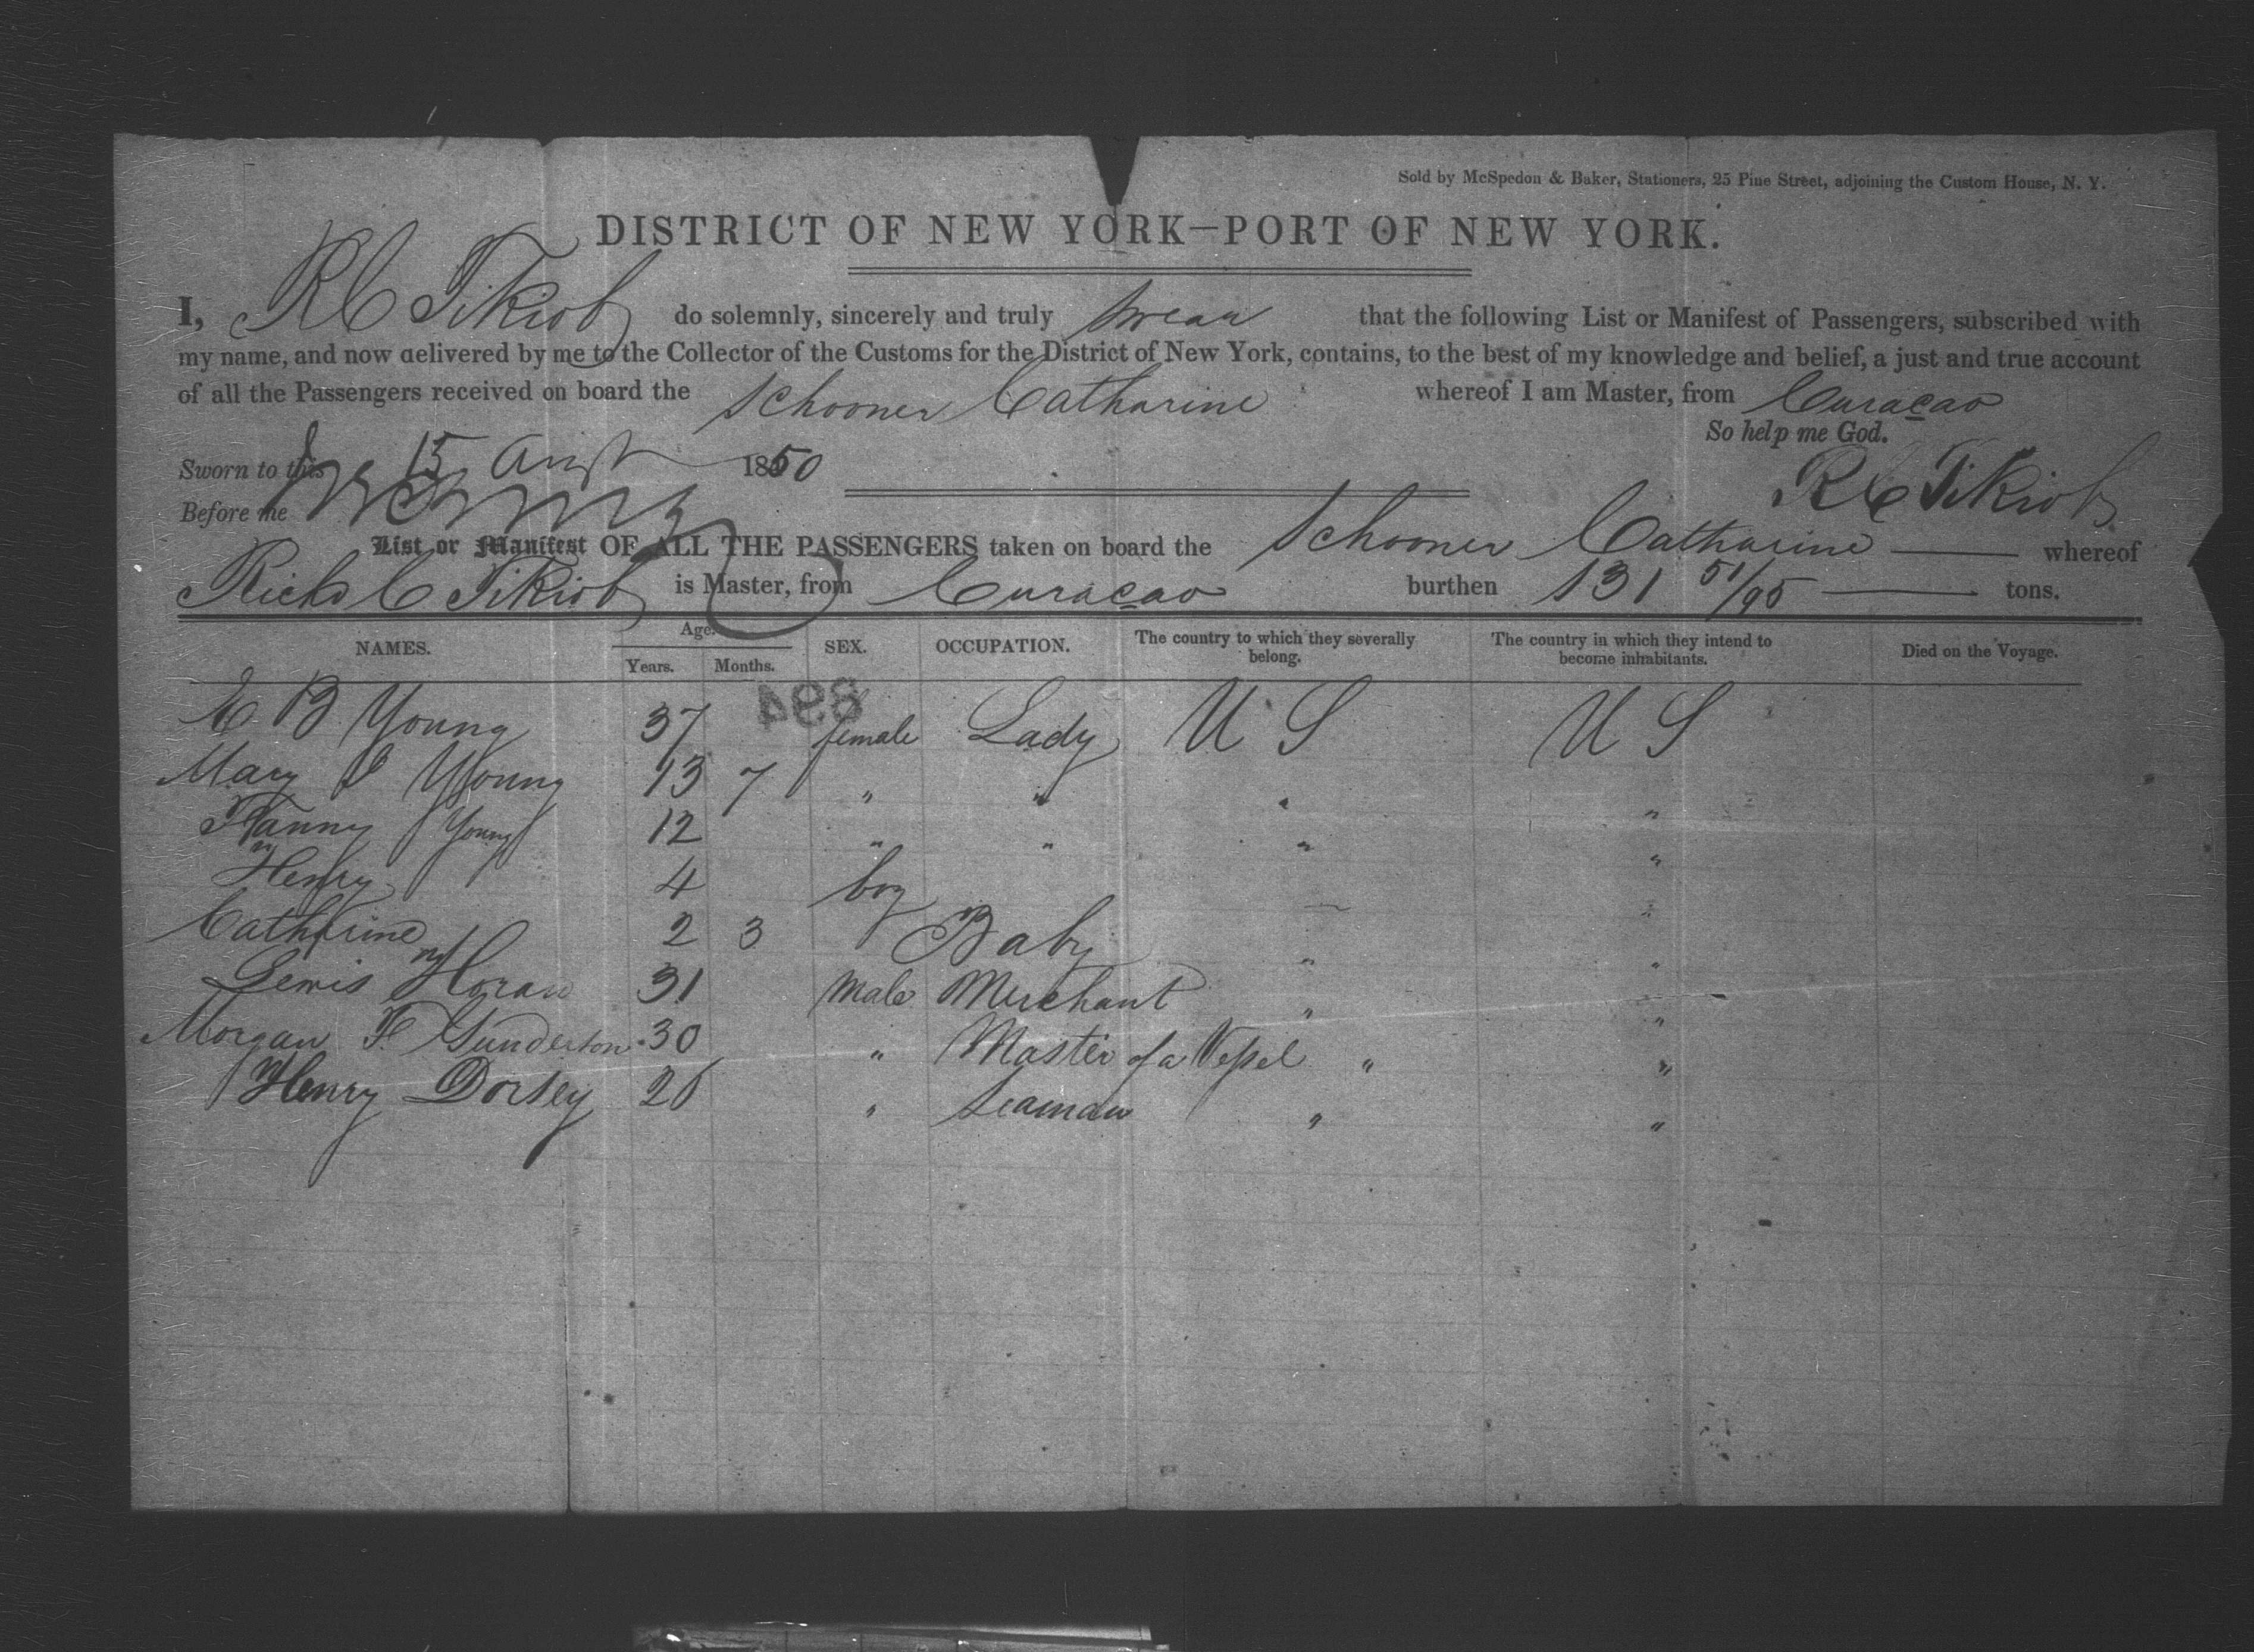 Sold by McSpedon & Baker, Stationers, 25 Pine Street, adjoining the Custom House, N. Y.
DISTRICT OF NEW YORK—PORT OF NEW YORK.
I, R C do solemnly, sincerely and truly swear that the following List or Manifest of Passengers, subscribed with
my name, and now delivered by me to the Collector of the Customs for the District of New York, contains, to the best of my knowledge and belief, a just and true account
of all the Passengers received on board the Schooner Catharine whereof I am Master, from Curaçao
So help me God.
Sworn to this 15 Augt 1850
R C
Before me
List or Manifest OF ALL THE PASSENGERS taken on board the Schooner Catharine — whereof
Richd C is Master, from Curaçao burthen 131 51/95 — tons.
NAMES. Age. SEX. OCCUPATION. The country to which they severally belong. The country in which they intend to become inhabitants. Died on the Voyage.
Years. Months.
894
E B Young 37 female Lady U S U S
Mary Young 13 7 " " " "
Fanny Young 12 " " " "
Henry 4 boy "
Catharine 2 3 Baby " "
Lewis 31 Male Merchant " "
Morgan F. 30 " Master of a Vessel " "
Henry Dorsey 26 " Seaman " "